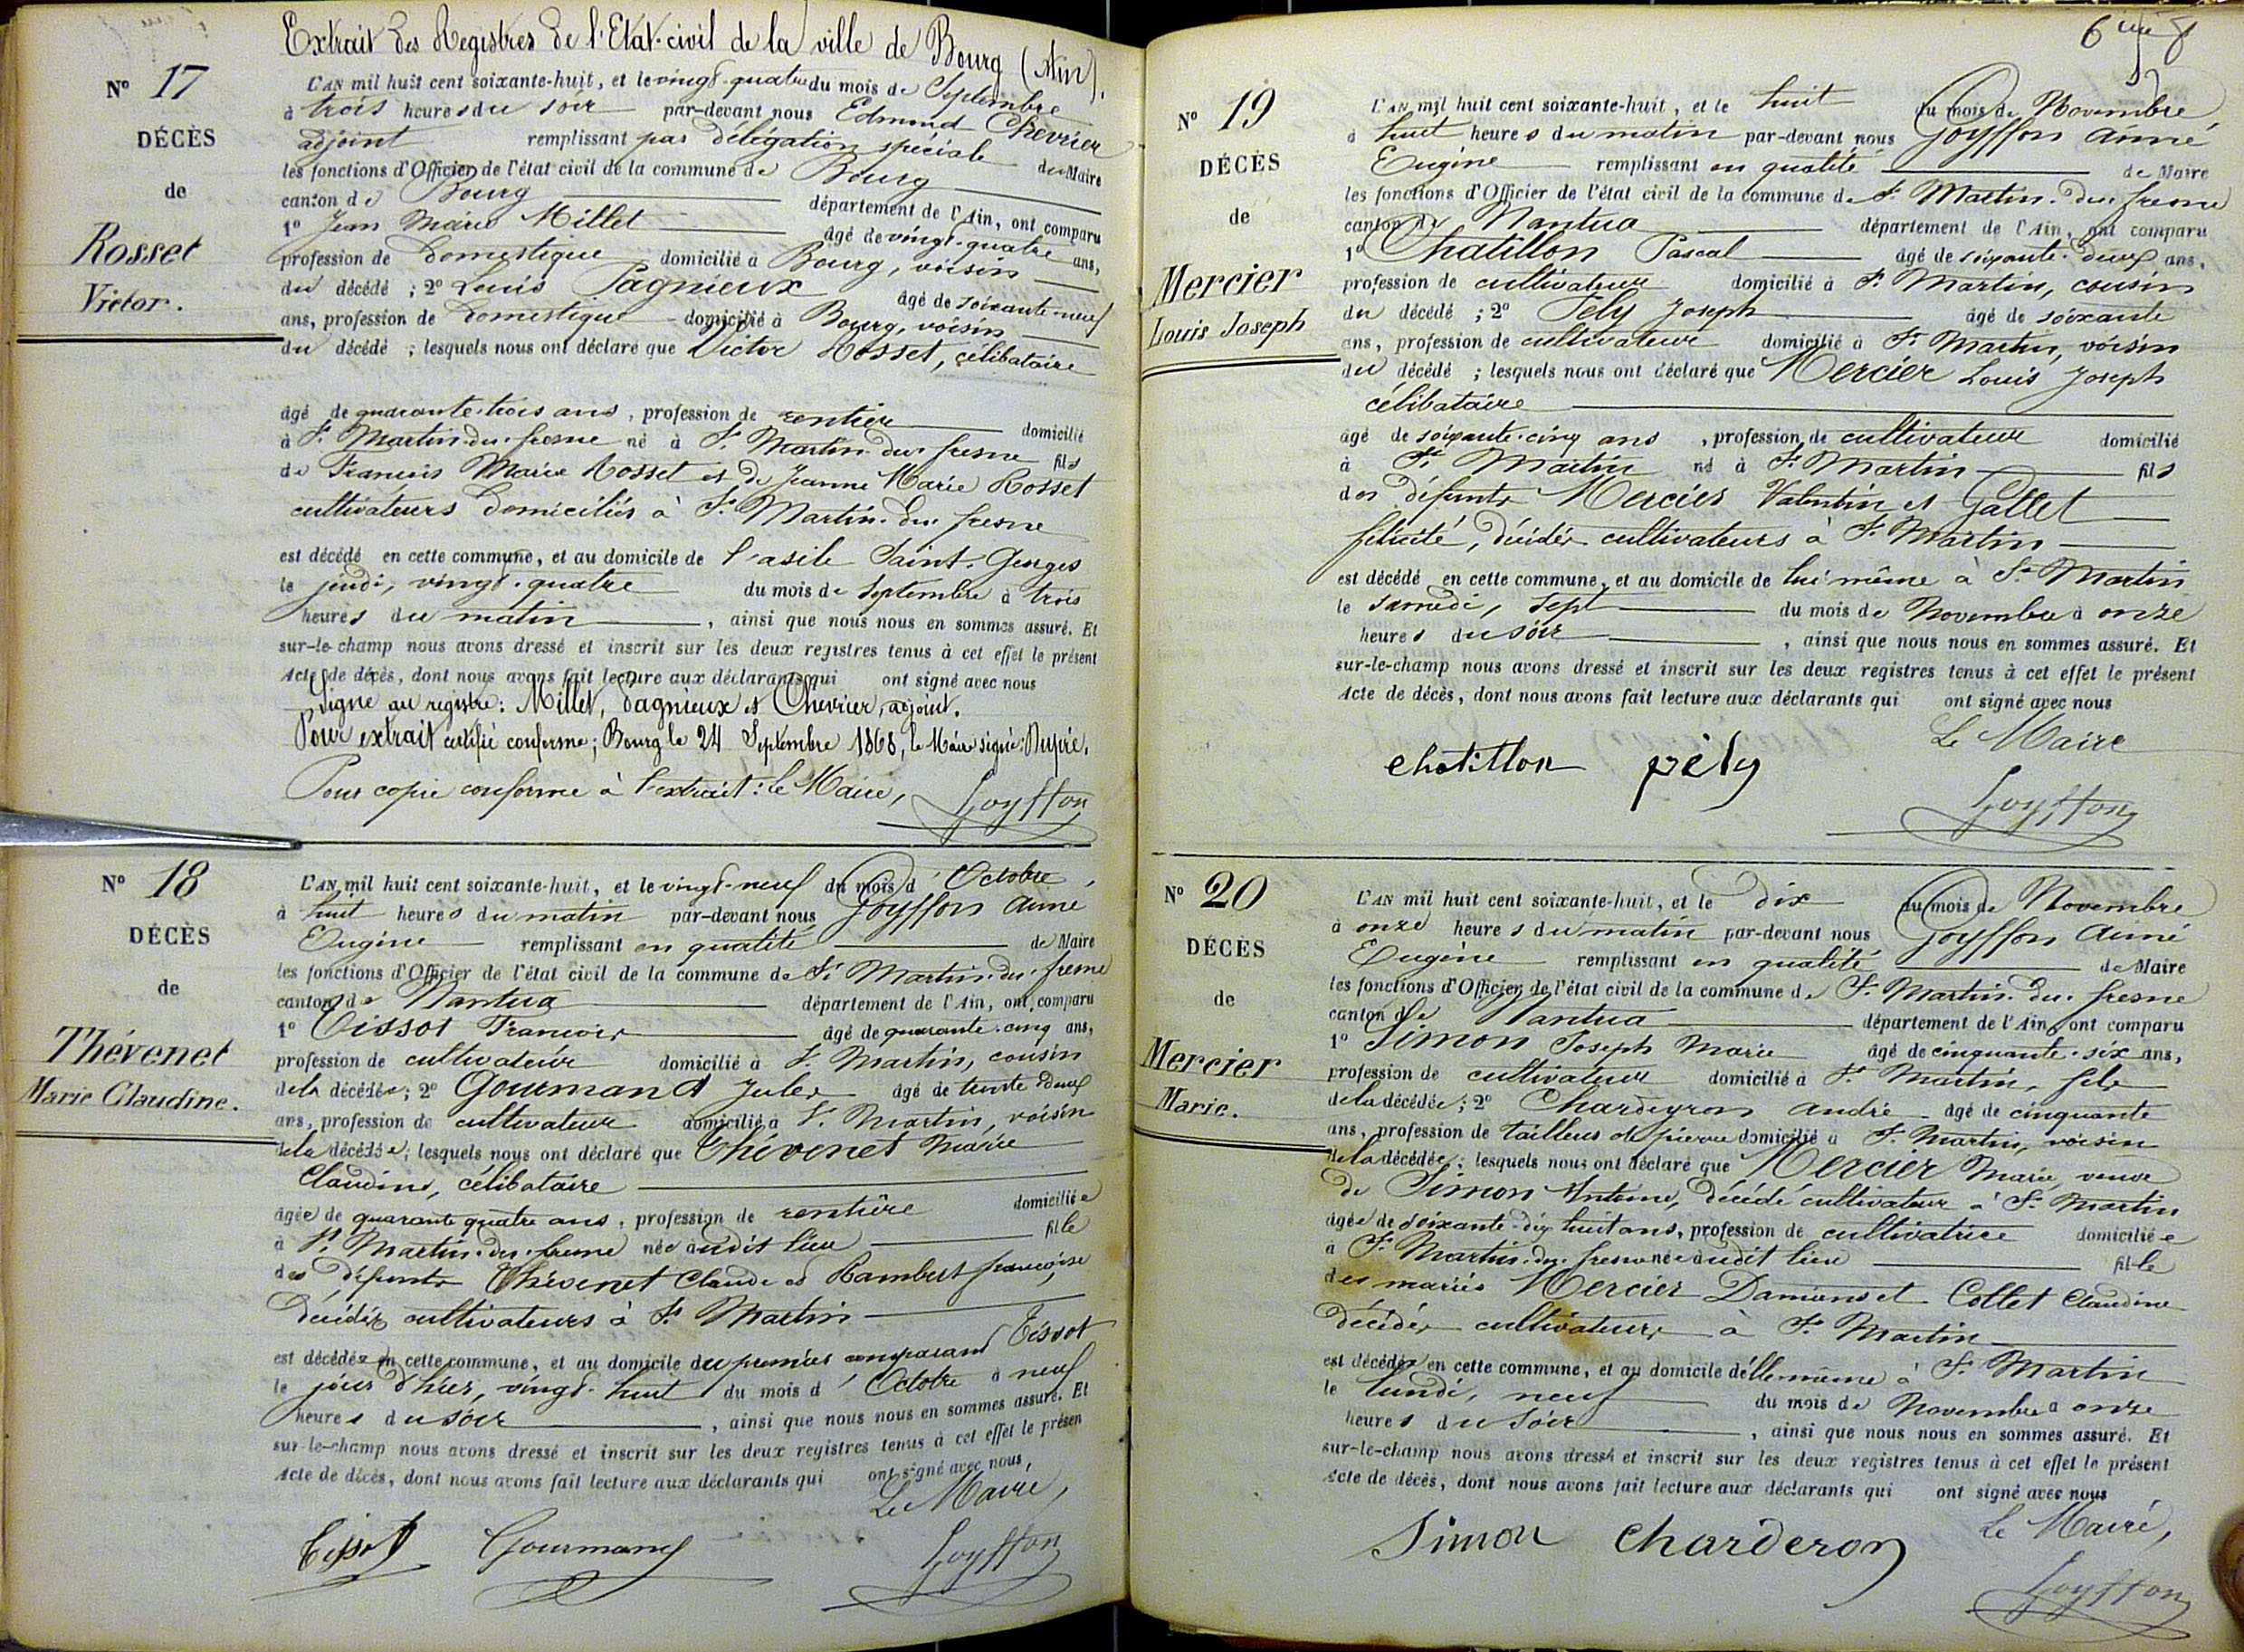 Extrait des Registres de l'Etat-civil de la ville de Bourg (Ain).
N° 17
DÉCÈS
de
Rosset
Victor.
L'AN mil huit cent soixante-huit, et le vingt-quatre du mois de Septembre
à trois heures du soir par-devant nous Edmond Chevrier
adjoint remplissant par délégation spéciale du Maire
les fonctions d'Officier de l'état civil de la commune de Bourg
canton de Bourg département de l'Ain, ont comparu
1° Jean Marie Millet âgé de vingt-quatre ans,
profession de Domestique domicilié à Bourg, voisin
du décédé ; 2° Louis Pagnieux âgé de soixante-neuf
ans, profession de Domestique domicilié à Bourg, voisin
du décédé ; lesquels nous ont déclaré que Victor Rosset, célibataire
âgé de quarante-trois ans, profession de rentier domicilié
à St Martin-du-fresne né à St Martin-du-fresne fils
de François Marie Rosset et de Jeanne Marie Rosset
cultivateurs domiciliés à St Martin-du-fresne
est décédé en cette commune, et au domicile de l'asile Saint-Georges
le jeudi, vingt-quatre du mois de Septembre à trois
heures du matin , ainsi que nous nous en sommes assuré. Et
sur-le-champ nous avons dressé et inscrit sur les deux registres tenus à cet effet le présent
Acte de décès, dont nous avons fait lecture aux déclarants qui ont signé avec nous
Signé au registre: Millet, Pagnieux et Chevrier, adjoint.
Pour extrait certifié conforme; Bourg le 24 Septembre 1868, le Maire signé: Dupré.
Pour copie conforme à l'extrait: le Maire,
Goyffon
N° 18
DÉCÈS
de
Thévenet
Marie Claudine.
L'AN mil huit cent soixante-huit, et le vingt-neuf du mois d'Octobre,
à huit heures du matin par-devant nous Goyffon Aimé
Eugène remplissant en qualité de Maire
les fonctions d'Officier de l'état civil de la commune de St Martin-du-fresne
canton de Nantua département de l'Ain, ont comparu
1° Tissot François âgé de quarante-cinq ans,
profession de cultivateur domicilié à St Martin, cousin
de la décédée; 2° Gourmand Jules âgé de trente deux
ans, profession de cultivateur domicilié à St Martin, voisin
de la décédée; lesquels nous ont déclaré que Thévenet Marie
Claudine, célibataire
âgée de quarante quatre ans, profession de rentière domiciliée
à St Martin-du-fresne née audit lieu fille
des défunts Thévenet Claude et Rambert françoise
décédés cultivateurs à St Martin
est décédée en cette commune, et au domicile du premier comparant Tissot
le jour d'hier, vingt-huit du mois d'Octobre à neuf
heures du soir , ainsi que nous nous en sommes assuré. Et
sur-le-champ nous avons dressé et inscrit sur les deux registres tenus à cet effet le présen
Acte de décès, dont nous avons fait lecture aux déclarants qui ont signé avec nous,
Le Maire,
Tissot Gourmand Goyffon
N° 19
DÉCÈS
de
Mercier
Louis Joseph
L'AN mil huit cent soixante-huit, et le huit du mois de Novembre,
à huit heures du matin par-devant nous Goyffon Aimé
Eugène remplissant en qualité de Maire
les fonctions d'Officier de l'état civil de la commune de St Martin-du-fresne
canton de Nantua département de l'Ain, ont comparu
1° Chatillon Pascal âgé de soixante-deux ans,
profession de cultivateur domicilié à St Martin, cousin
du décédé ; 2° Pély Joseph âgé de soixante
ans, profession de cultivateur domicilié à St Martin, voisin
du décédé ; lesquels nous ont déclaré que Mercier Louis Joseph
célibataire
âgé de soixante-cinq ans, profession de cultivateur domicilié
à St Martin né à St Martin fils
des défunts Mercier Valentin et Gallet
félicité, décédés cultivateurs à St Martin
est décédé en cette commune, et au domicile de lui même à St Martin
le samedi, sept du mois de Novembre à onze
heures du soir , ainsi que nous nous en sommes assuré. Et
sur-le-champ nous avons dressé et inscrit sur les deux registres tenus à cet effet le présent
Acte de décès, dont nous avons fait lecture aux déclarants qui ont signé avec nous
Le Maire
chatillon pély
Goyffon
N° 20
DÉCÈS
de
Mercier
Marie.
L'AN mil huit cent soixante-huit, et le dix du mois de Novembre
à onze heures du matin par-devant nous Goyffon Aimé
Eugène remplissant en qualité de Maire
les fonctions d'Officier de l'état civil de la commune de St Martin-du-fresne
canton de Nantua département de l'Ain, ont comparu
1° Simon Joseph Marie âgé de cinquante-six ans,
profession de cultivateur domicilié à St Martin, fils
de la décédée; 2° Charderon André âgé de cinquante
ans, profession de tailleur de pierre domicilié à St Martin, voisin
de la décédée; lesquels nous ont déclaré que Mercier Marie, veuve
de Simon Antoine, décédé cultivateur à St Martin
âgée de soixante-dix huit ans, profession de cultivatrice domiciliée
à St Martin-du-fresne née audit lieu fille
des mariés Mercier Damien et Collet Claudine
décédés cultivateurs à St Martin
est décédée en cette commune, et au domicile d'elle-même à St Martin
le lundi, neuf du mois de Novembre à onze
heures du soir , ainsi que nous nous en sommes assuré. Et
sur-le-champ nous avons dressé et inscrit sur les deux registres tenus à cet effet le présent
Acte de décès, dont nous avons fait lecture aux déclarants qui ont signé avec nous
Le Maire,
Simon Charderon
Goyffon